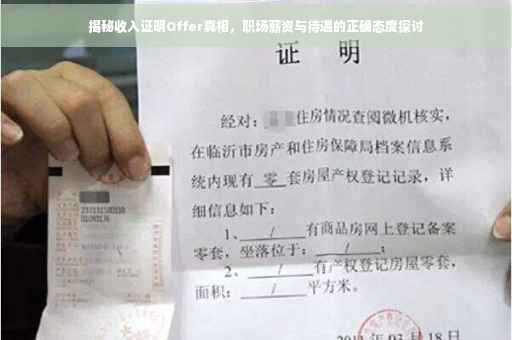 揭秘收入证明Offer真相，职场薪资与待遇的正确态度探讨
证 明
经对： 住房情况查阅微机核实，
在临沂市房产和住房保障局档案信息系
统内现有 零 套房屋产权登记记录，详
细信息如下：
1、 / 有商品房网上登记备案
零套，坐落位于： / ；
2、 / 有产权登记房屋零套，
面积： / 平方米。
03月18日